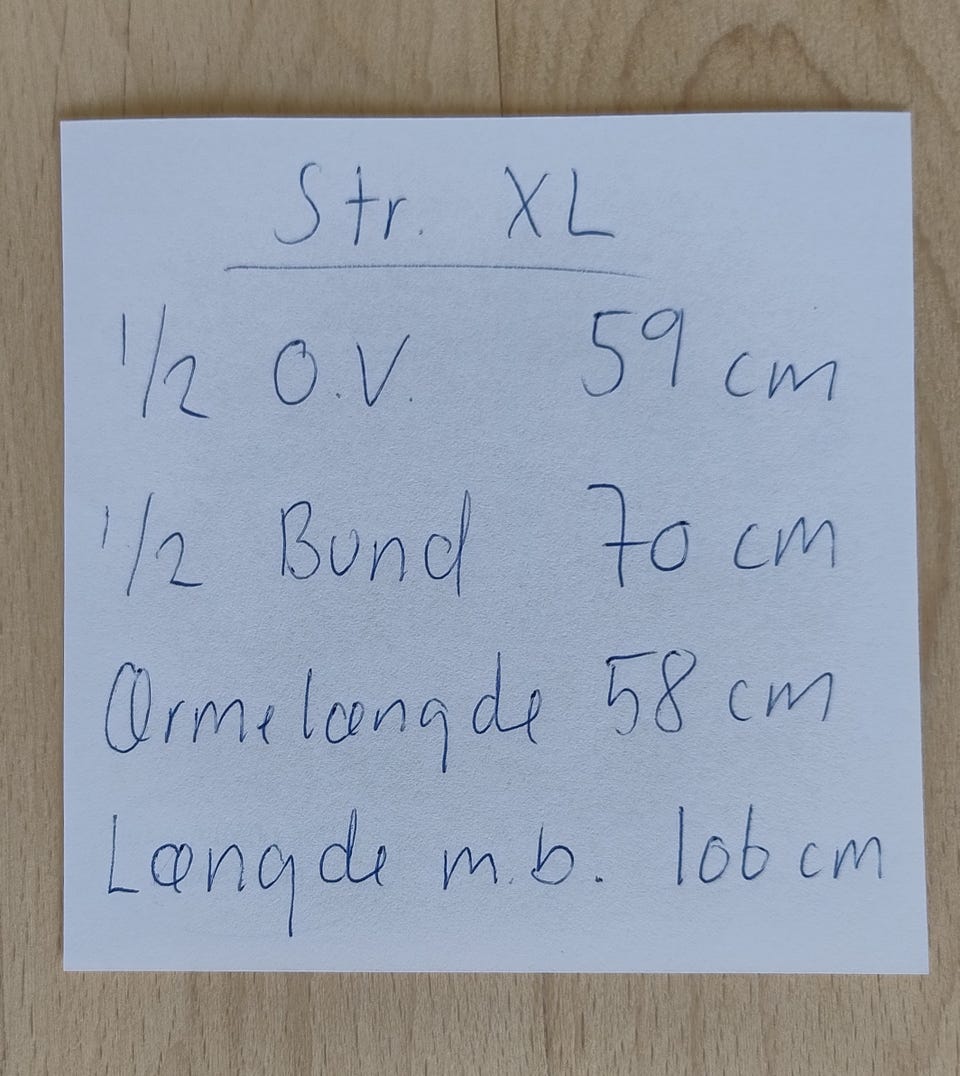 Str. XL
1/2 O.V. 59 cm
1/2 Bund 70 cm
Ærmelængde 58 cm
Længde m.b. 106 cm